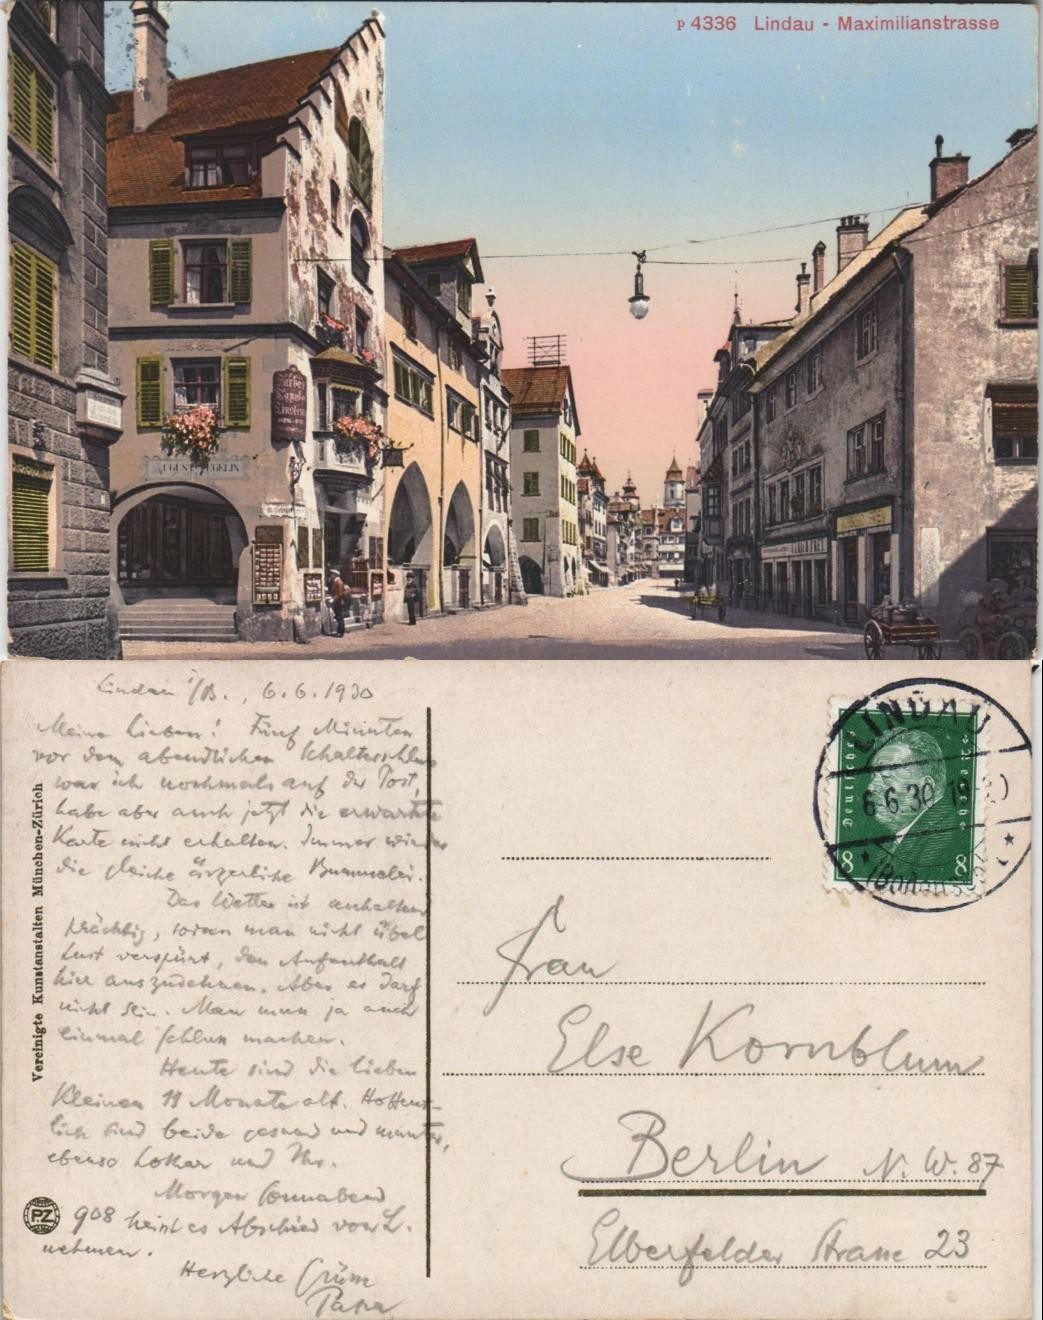 P 4336 Lindau - Maximilianstrasse
AUGUST
Lindau i/B., 6.6.1930
Meine Lieben! Fünf Minuten
vor dem abendlichen Schalterschluss
war ich nochmals auf der Post,
habe aber auch jetzt die erwartete
Karte nicht erhalten. Immer wieder
die gleiche ärgerliche Bummelei.
Das Wetter ist anhaltend
prächtig, sodass man nicht übel
Lust verspürt, den Aufenthalt
hier auszudehnen. Aber es darf
nicht sein. Man muss ja auch
einmal Schluss machen.
Heute sind die lieben
Kleinen 11 Monate alt. Hoffent-
lich sind beide gesund und munter,
ebenso Lothar und Ihr.
Morgen Sonnabend
908 heisst es Abschied von L.
nehmen.
Herzliche Grüsse
Papa
Vereinigte Kunstanstalten München-Zürich
PZ
Deutsches Reich
8 8
LINDAU
6.6.30. 19
(Bodensee)
Frau
Else Kornblum
Berlin N.W. 87
Elberfelder Strasse 23